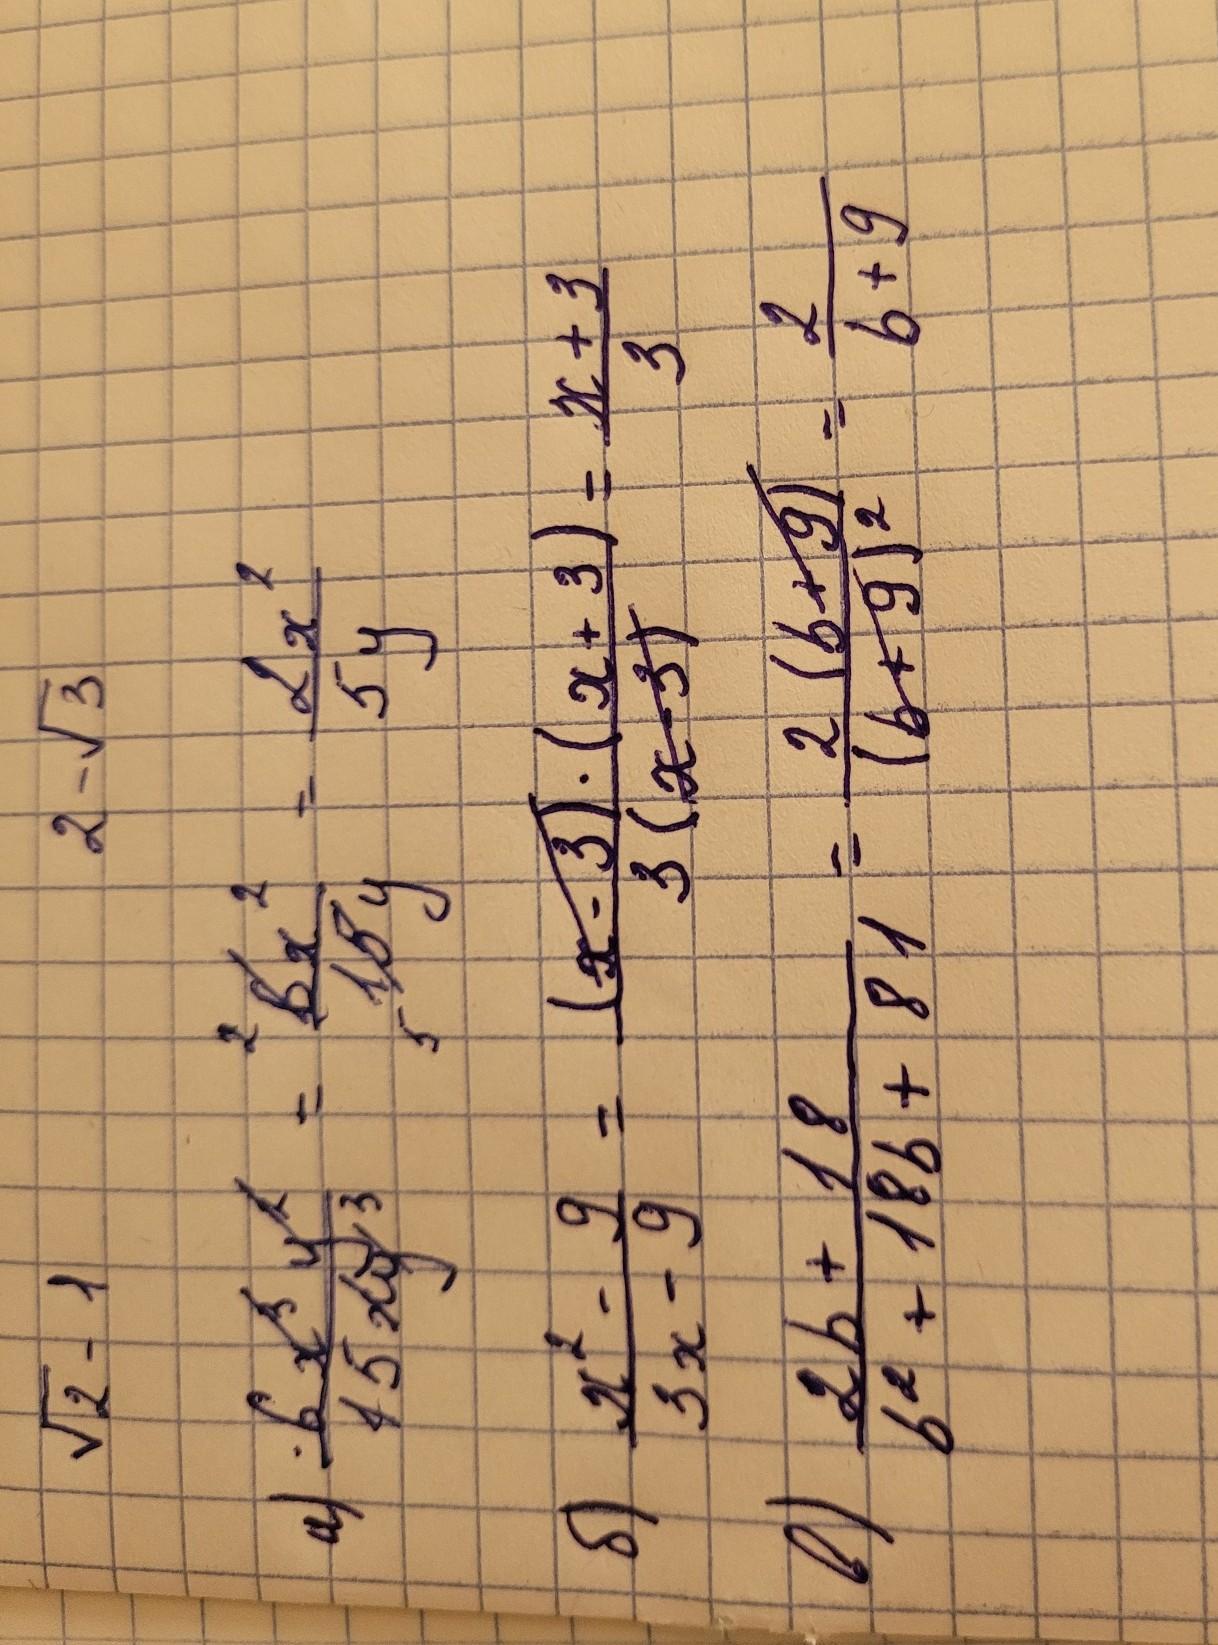 √2 - 1    2 - √3
а) 6x³y² / 15xy³ = 6x² / 15y = 2x² / 5y
б) x² - 9 / 3x - 9 = (x - 3)·(x + 3) / 3(x - 3) = x + 3 / 3
в) 2b + 18 / b² + 18b + 81 = 2(b + 9) / (b + 9)² = 2 / b + 9